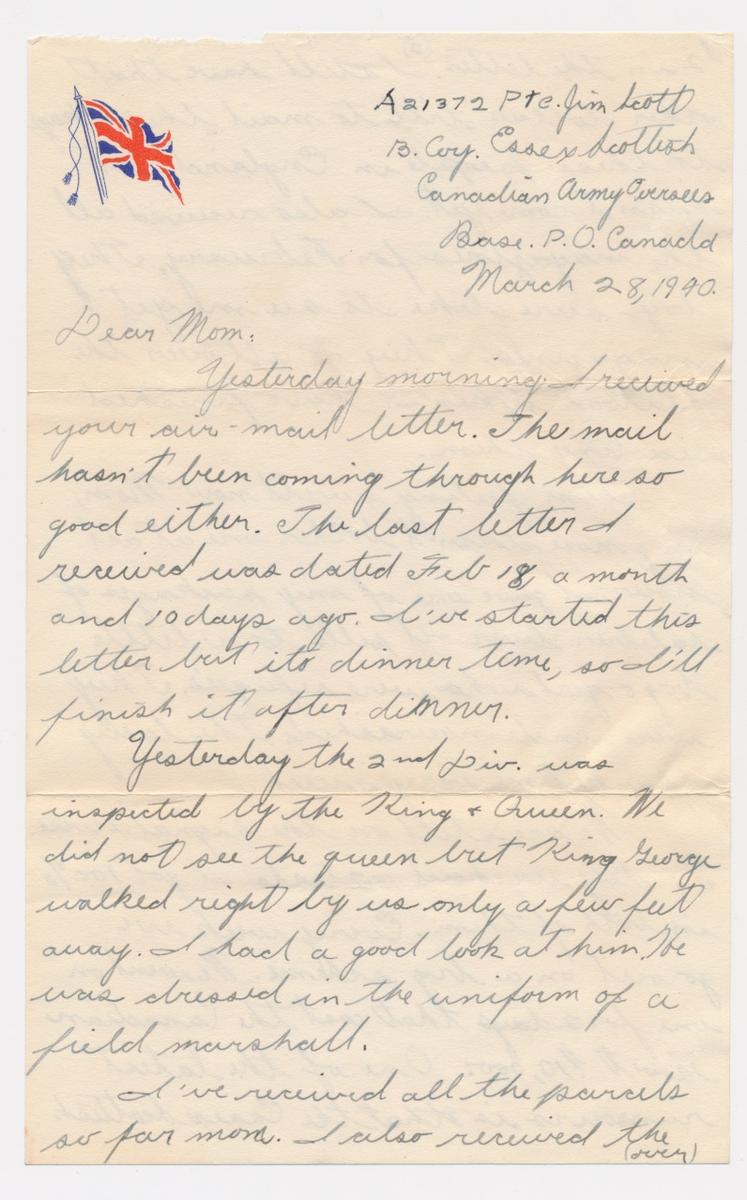 A21372 Ptc. Jim Scott
B. Coy. Essex Scottish
Canadian Army Overses
Base. P.O. Canada
March 28, 1940.
Dear Mom:
Yesterday morning I received
your air-mail letter. The mail
hasn't been coming through here so
good either. The last letter I
received was dated Feb 18, a month
and 10 days ago. I've started this
letter but its dinner time, so I'll
finish it after dinner.
Yesterday the 2nd Div. was
inspected by the King & Queen. We
did not see the queen but King George
walked right by us only a few feet
away. I had a good look at him. He
was dressed in the uniform of a
field marshall.
I've received all the parcels
so far mom. I also received the
(over)